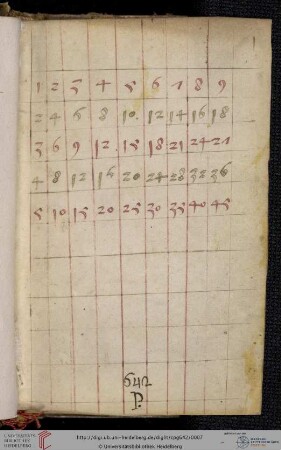 1
1 2 3 4 5 6 7 8 9
2 4 6 8 10 12 14 16 18
3 6 9 12 15 18 21 24 21
4 8 12 16 20 24 28 32 36
5 10 15 20 25 30 35 40 45
642
P.
UNIVERSITÄTS-
BIBLIOTHEK
HEIDELBERG
© Universitätsbibliothek Heidelberg